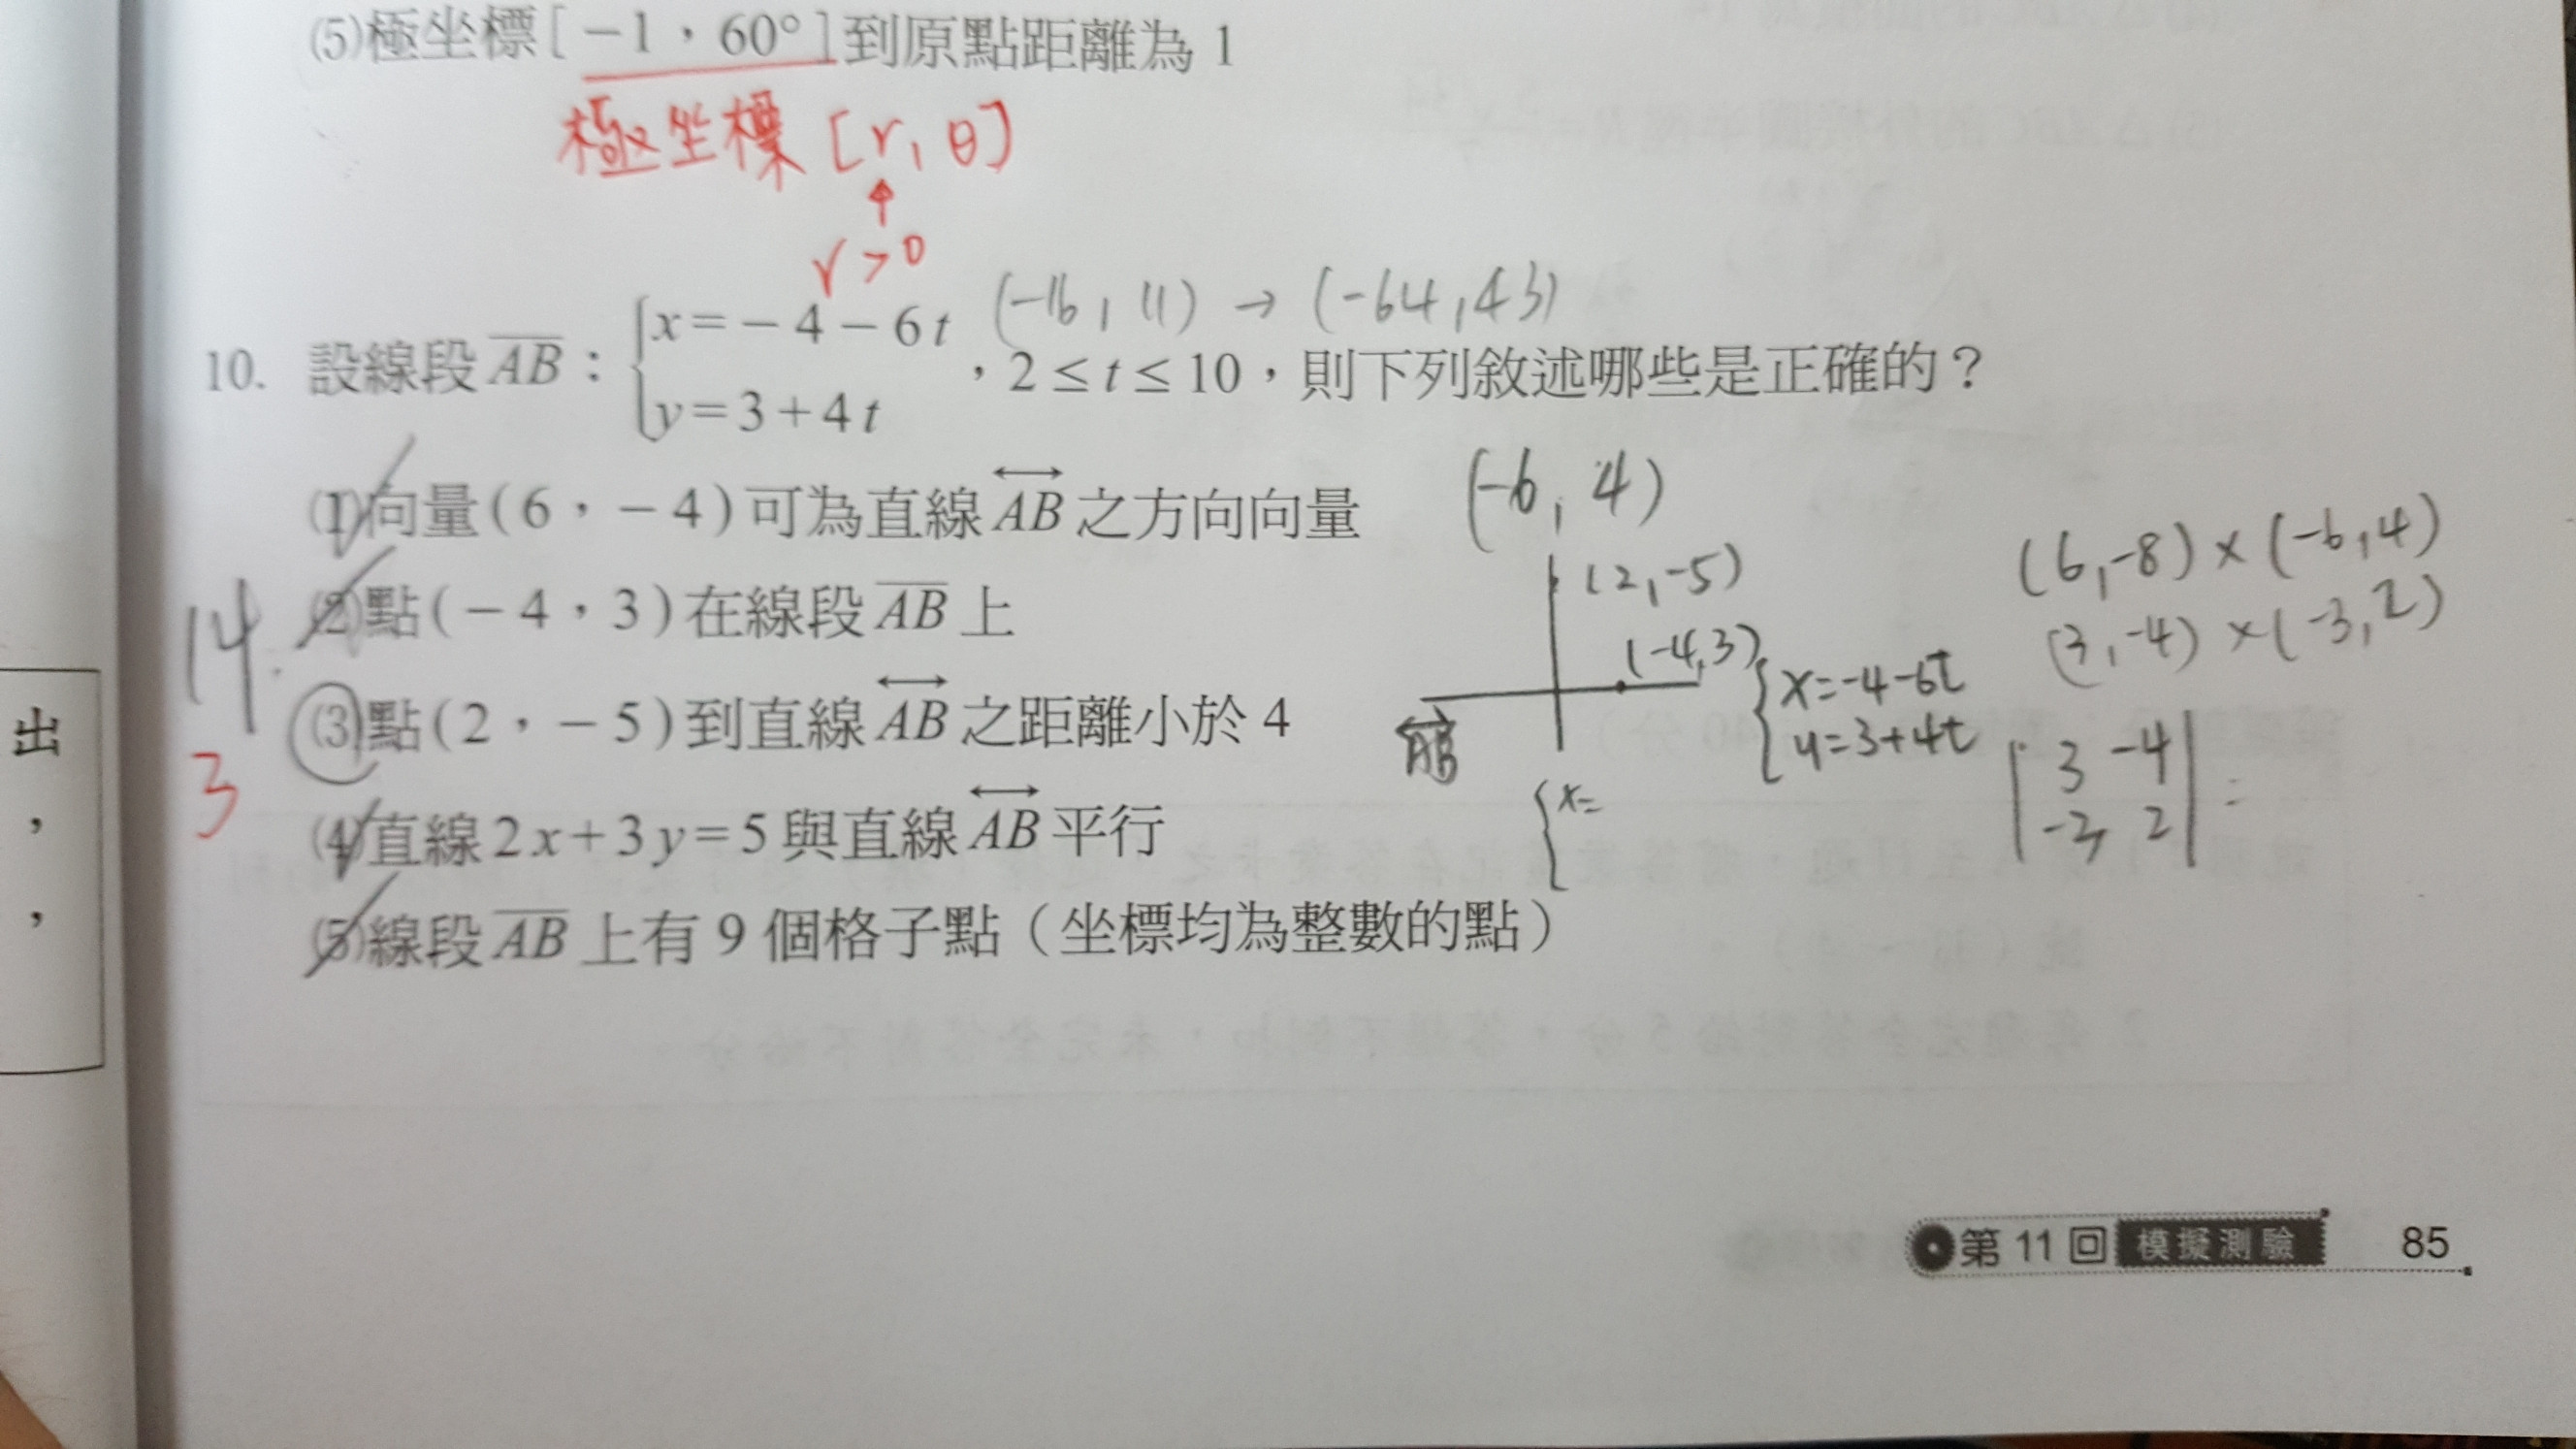 (5)極坐標[-1，60°]到原點距離為 1
極坐標 [r, θ]
↑
r > 0
(-16, 11) → (-64, 43)
10. 設線段 AB：{x=-4-6t
y=3+4t ，2≤t≤10，則下列敘述哪些是正確的？
(1)向量(6，-4)可為直線 AB 之方向向量
(-6, 4)
(2)點(-4，3)在線段 AB 上
(3)點(2，-5)到直線 AB 之距離小於 4
(4)直線 2x+3y=5 與直線 AB 平行
(5)線段 AB 上有 9 個格子點（坐標均為整數的點）
14
3
(2, -5)
(-4, 3)
{x=-4-6t
y=3+4t
{x=
(6, -8) × (-6, 4)
(3, -4) × (-3, 2)
| 3 -4 |
2 | =
出
，
，
第 11 回 模擬測驗 85